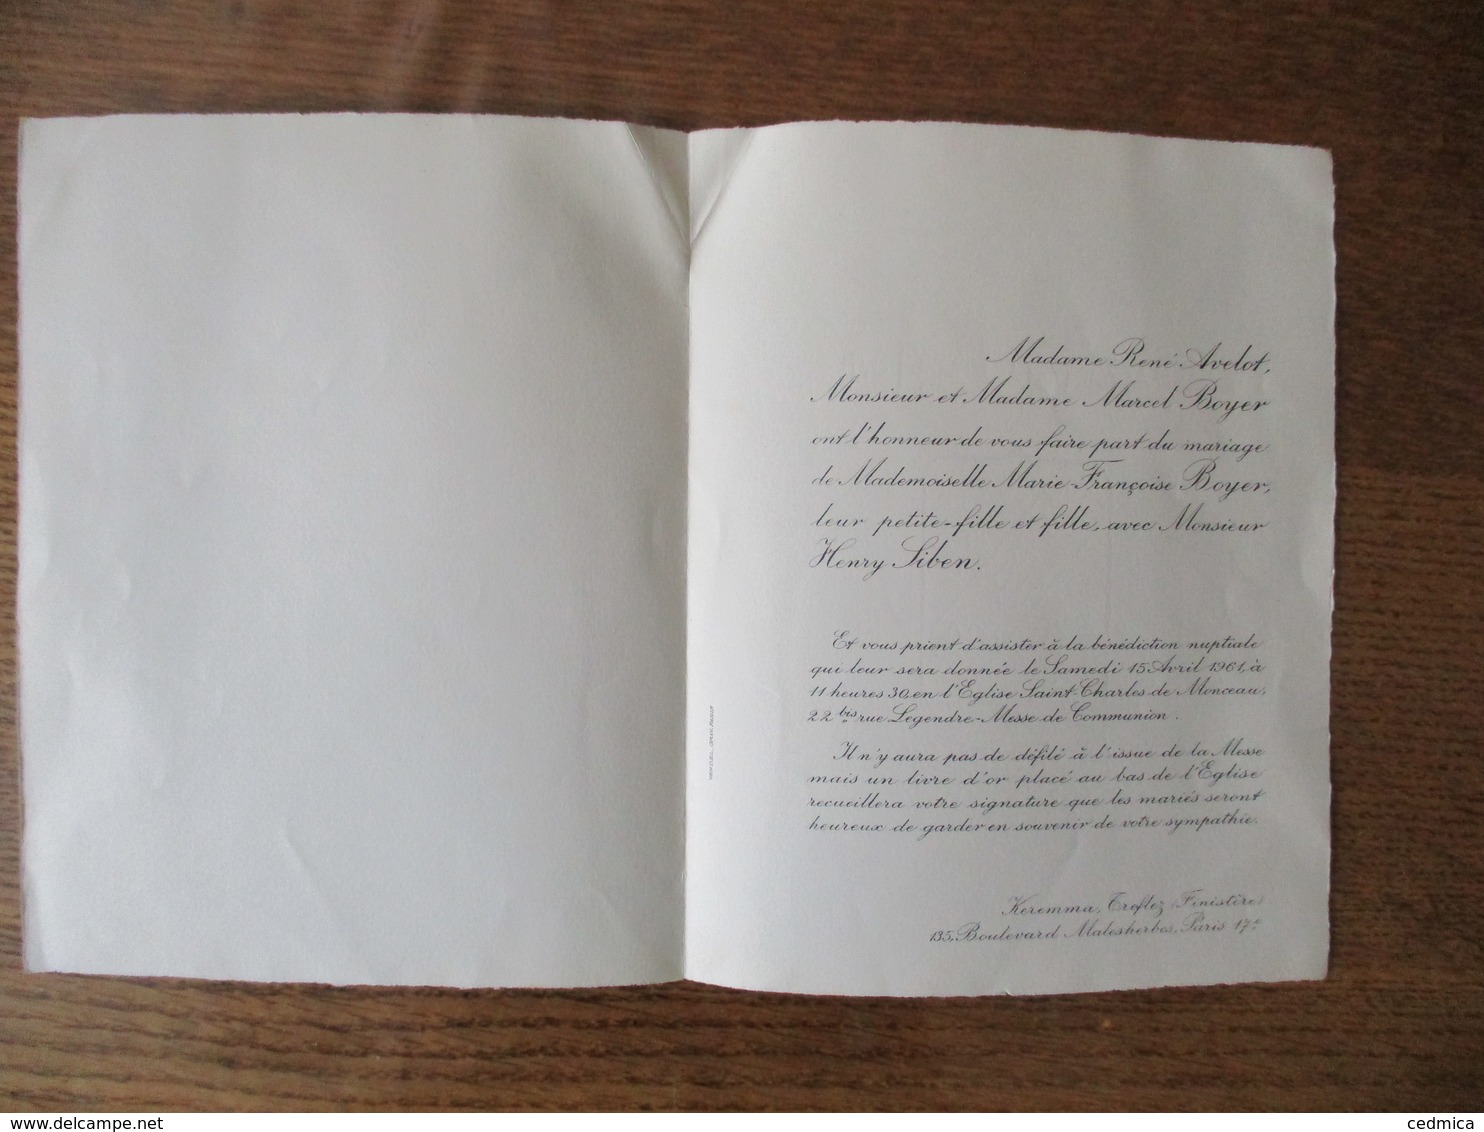 Madame René Avelot,
Monsieur et Madame Marcel Boyer
ont l'honneur de vous faire part du mariage
de Mademoiselle Marie-Françoise Boyer,
leur petite-fille et fille, avec Monsieur
Henry Siben.
Et vous prient d'assister à la bénédiction nuptiale
qui leur sera donnée le Samedi 15 Avril 1961, à
11 heures 30, en l'Eglise Saint-Charles de Monceau,
22 bis rue Legendre - Messe de Communion.
Il n'y aura pas de défilé à l'issue de la Messe
mais un livre d'or placé au bas de l'Eglise
recueillera votre signature que les mariés seront
heureux de garder en souvenir de votre sympathie.
Keremma, Treflez (Finistère)
135, Boulevard Malesherbes, Paris 17e
cedmica
delcampe.net